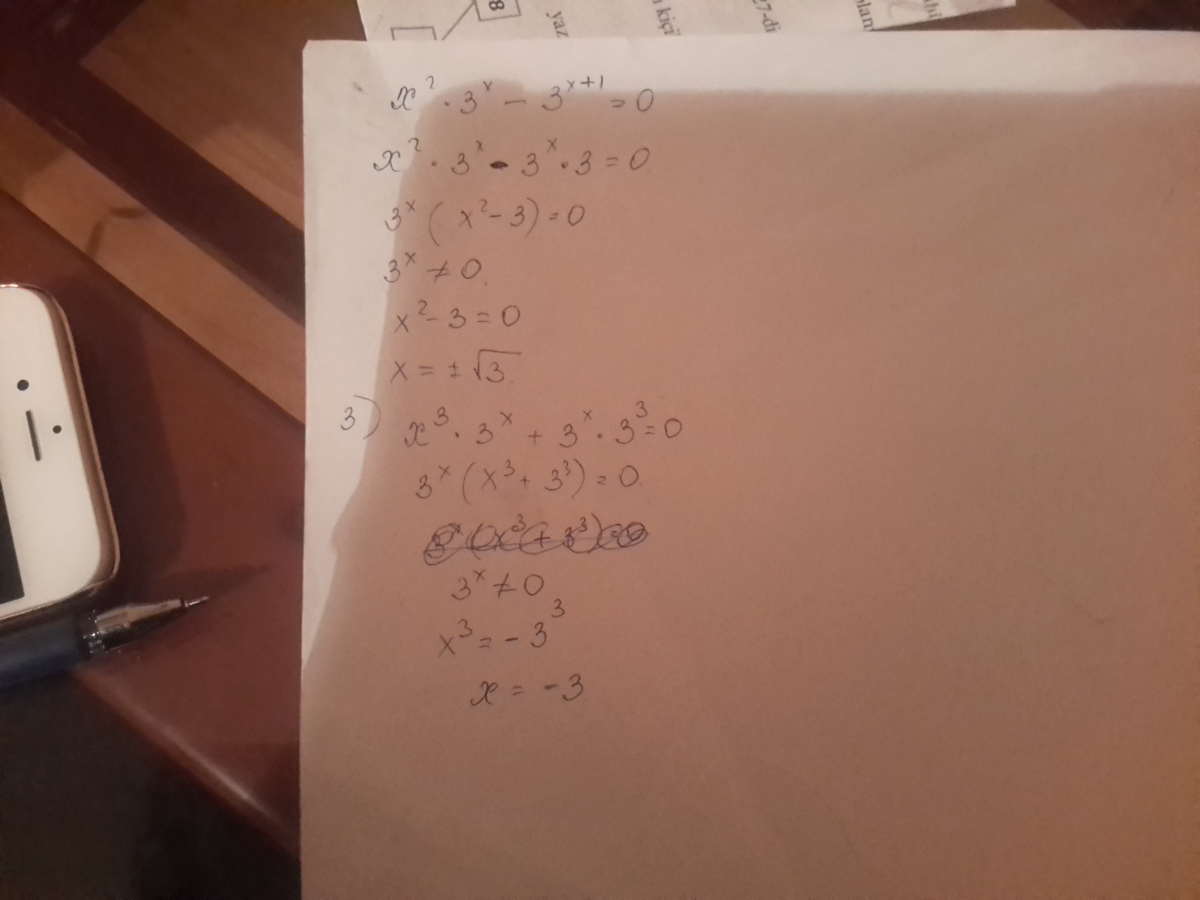 8
yaz
kiçi
27-di
x² · 3ˣ − 3ˣ⁺¹ = 0
x² · 3ˣ - 3ˣ · 3 = 0
3ˣ ( x² − 3) = 0
3ˣ ≠ 0.
x² − 3 = 0
x = ± √3.
3) x³ · 3ˣ + 3ˣ · 3³ = 0
3ˣ (x³ + 3³) = 0
3ˣ ≠ 0
x³ = − 3³
x = −3